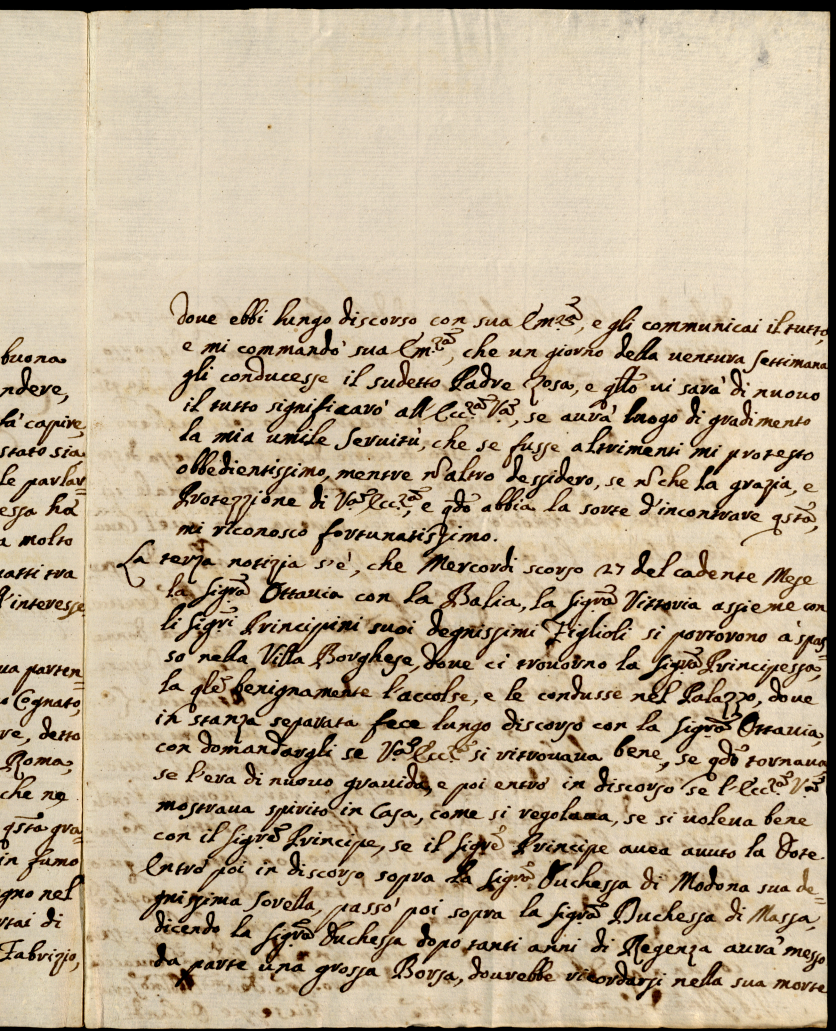 buona
ndere,
fà capire,
stato sia
le parlar=
essa hà
a molto
natti tra
l'interesse
ua parten=
o Cognato,
re, detto
Roma,
che ne
qsta gra=
in fumo
gno nel
rtai di
Fabrizio,
Doue ebbi lungo discorso con sua Em.za, e gli communicai il tutto,
e mi commandò sua Em.za, che un giorno della uentura settimana
gli conducesse il sudetto Padre Rosa, e qllo ui sarà di nuouo
il tutto significarò all'Ecc.za Va, se aurà luogo di gradimento
la mia umile seruitù, che se fusse altrimenti mi protesto
obbedientissimo, mentre nō altro dessidero, se nō che la grazia, e
Protezzione di Va Ecc.za, e qdo abbia la sorte d'incontrare qsta,
mi riconosco fortunatissimo.
La terza notizia s'è, che Mercordì scorso 27 del cadente Mese
la Sigra Ottauia con la Balia, la Sigra Vittoria assieme con
li Sigri Principini suoi degnissimi Figlioli si portorono à spas=
so nella Villa Borghese, doue ci trouorno la Sigra Principessa,
la qle benignamente l'accolse, e le condusse nel Palazzo, doue
in stanza separata fece lungo discorso con la Sigra Ottauia,
con domandargli se Va Ecc.za si ritrouaua bene, se qdo tornaua,
se l'era di nuouo grauida, e poi entrò in discorso se l'Ecc.za Va
mostraua spirito in Casa, come si regolaua, se si uoleua bene
con il Sigre Principe, se il Sigre Principe auea auuto la Dote.
Entrò poi in discorso sopra la Sigra Duchessa di Modona sua de=
gnissima sorella, passò poi sopra la Sigra Duchessa di Massa,
dicendo la Sigra Duchessa dopo tanti anni di Regenza aurà messo
da parte una grossa Borsa, dourebbe ricordarsi nella sua morte